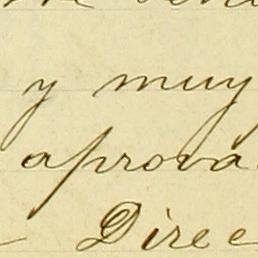 y muy
aprova
Diree